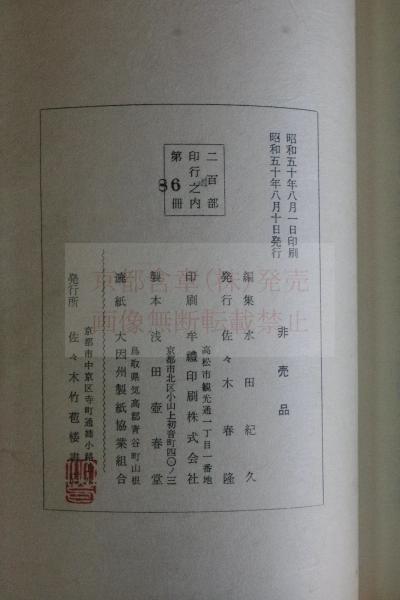 昭和五十年八月一日印刷
昭和五十年八月十日発行
二百部
印行之内
第86冊
非売品
編集 水田紀久
発行 佐々木春隆
高松市観光通一丁目一番地
印刷 牟禮印刷株式会社
京都市北区小山上初音町四〇ノ三
製本 浅田壺春堂
鳥取県気高郡青谷町山根
漉紙 大因州製紙協業組合
京都市中京区寺町通姉小路
発行所 佐々木竹苞楼書
京都含章(株)発売
画像無断転載禁止